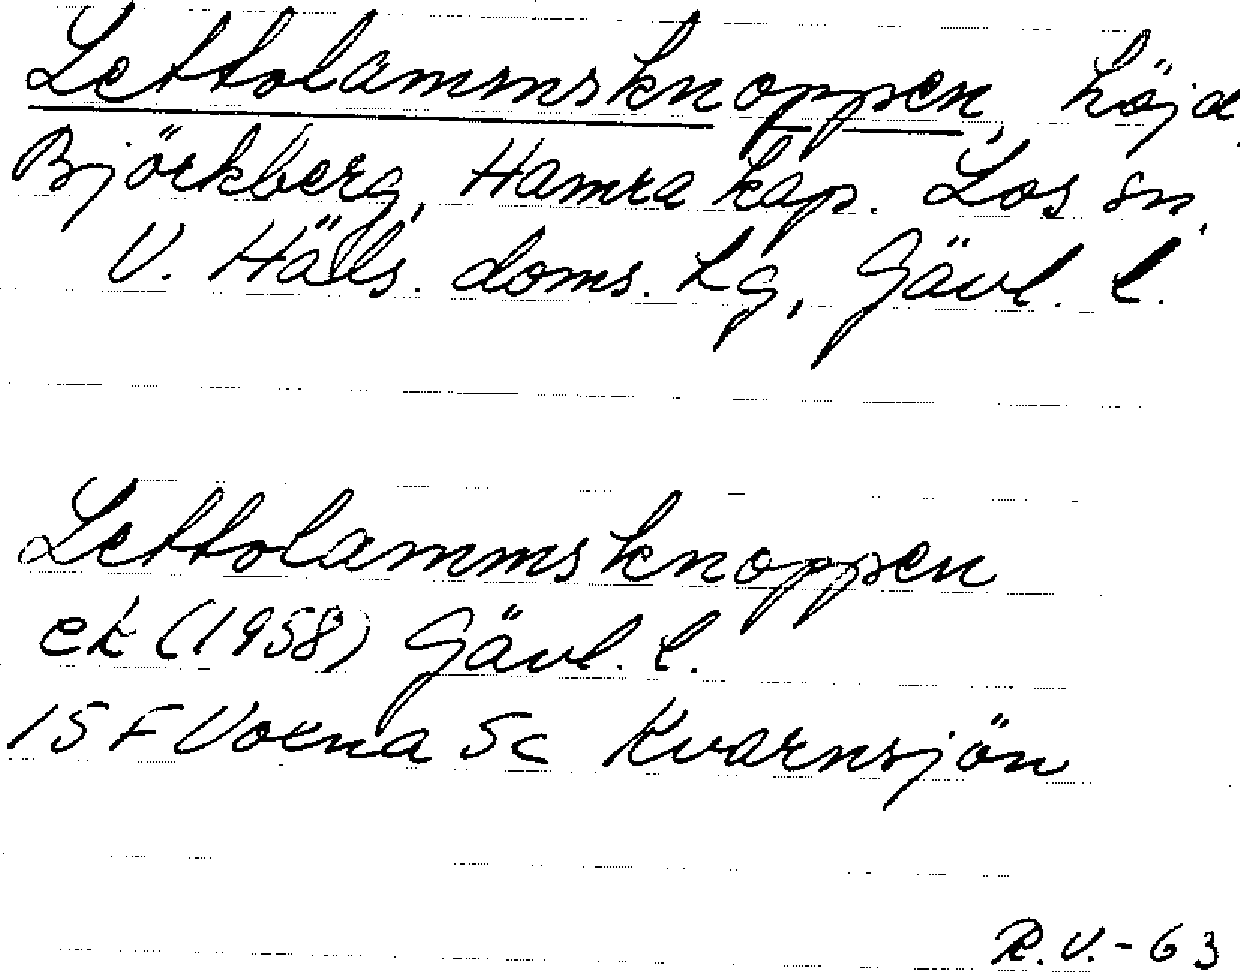 Lettolammsknoppen, höjd
Björkberg, Hamra kap. Los sn,
V. Hälls. doms. hg, Gävl. l.
Lettolammsknoppen
ek (1958) Gävl. l.
15 F Voxna 5c Kvarnsjön
R.V.-63